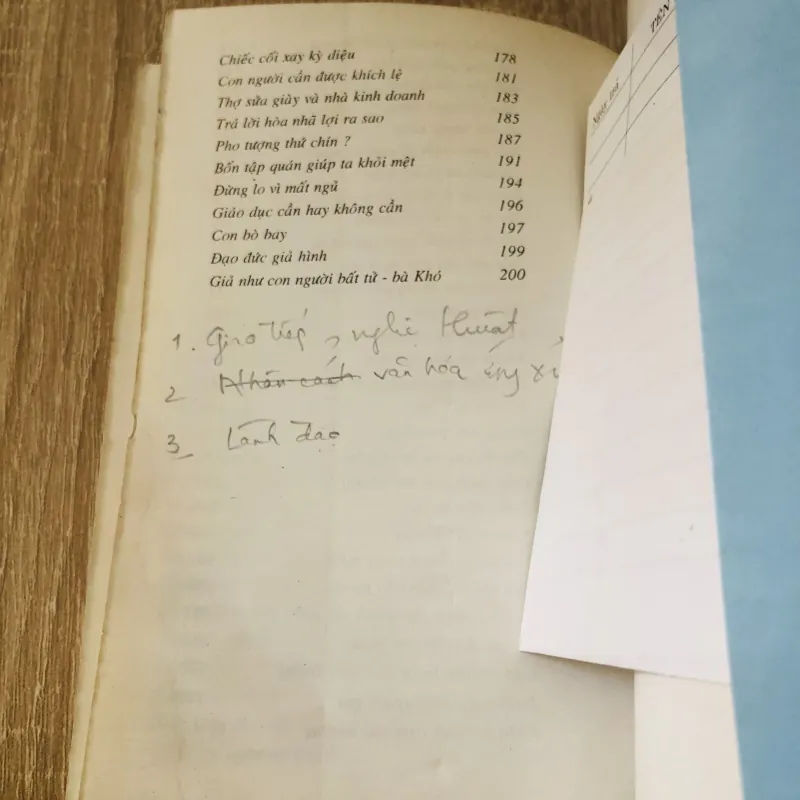 Chiếc cối xay kỳ diệu 178
Con người cần được khích lệ 181
Thợ sửa giày và nhà kinh doanh 183
Trả lời hòa nhã lợi ra sao 185
Pho tượng thứ chín ? 187
Bốn tập quán giúp ta khỏi mệt 191
Đừng lo vì mất ngủ 194
Giáo dục cần hay không cần 196
Con bò bay 197
Đạo đức giả hình 199
Giả như con người bất tử - bà Khó 200
1. Giao tiếp, nghệ thuật
2 Nhân cách văn hóa ứng xử
3 Lãnh đạo
TÊN
Ngày trả